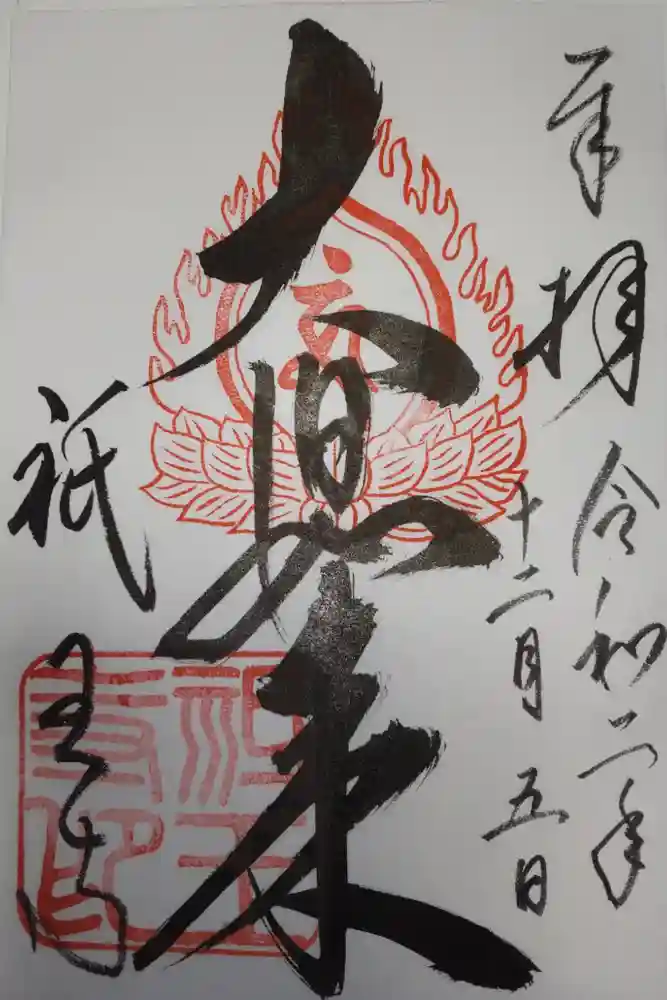 奉拝
令和二年
十二月五日
大日如来
祇王寺
祇王寺印